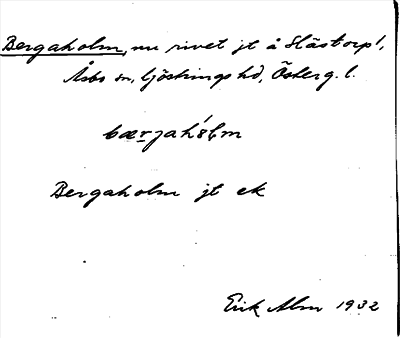 Bergaholm, nu rivet jt å Slästorp 1,
Åsbo sn, Göstrings hd, Österg. l.
bærjahólm
Bergaholm jt ek
Erik Alm 1932